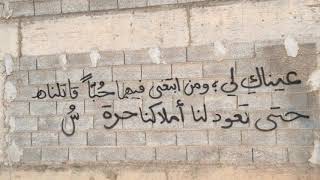 عيناك لي ؛ ومن ابتغى فيها حُبّاً قاتلناه
حتى تعود لنا أملاكنا حرة سُ